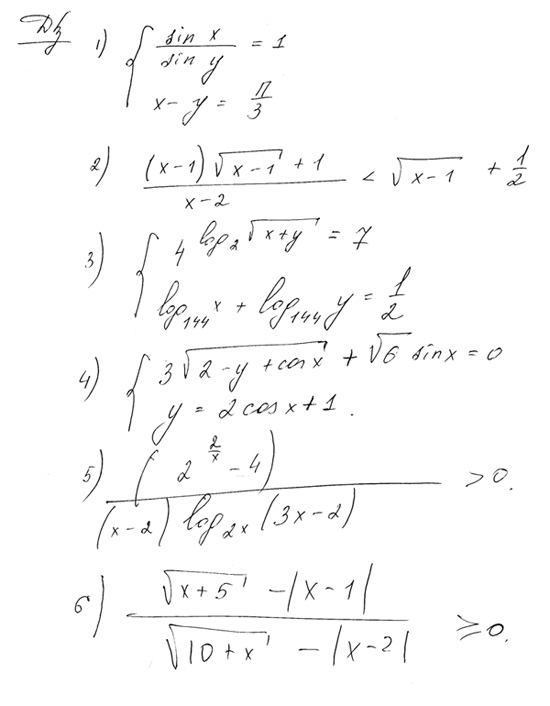 Дз
1) { sin x / sin y = 1
x - y = π/3
2) ((x-1)√(x-1) + 1) / (x-2) < √(x-1) + 1/2
3) { 4^(log₂ √(x+y)) = 7
log₁₄₄ x + log₁₄₄ y = 1/2
4) { 3√(2-y+cos x) + √6 sin x = 0
y = 2 cos x + 1.
5) (2^(2/x) - 4) / ((x-2) log_{2x} (3x-2)) > 0.
6) (√(x+5) - |x-1|) / (√(10+x) - |x-2|) ≥ 0.